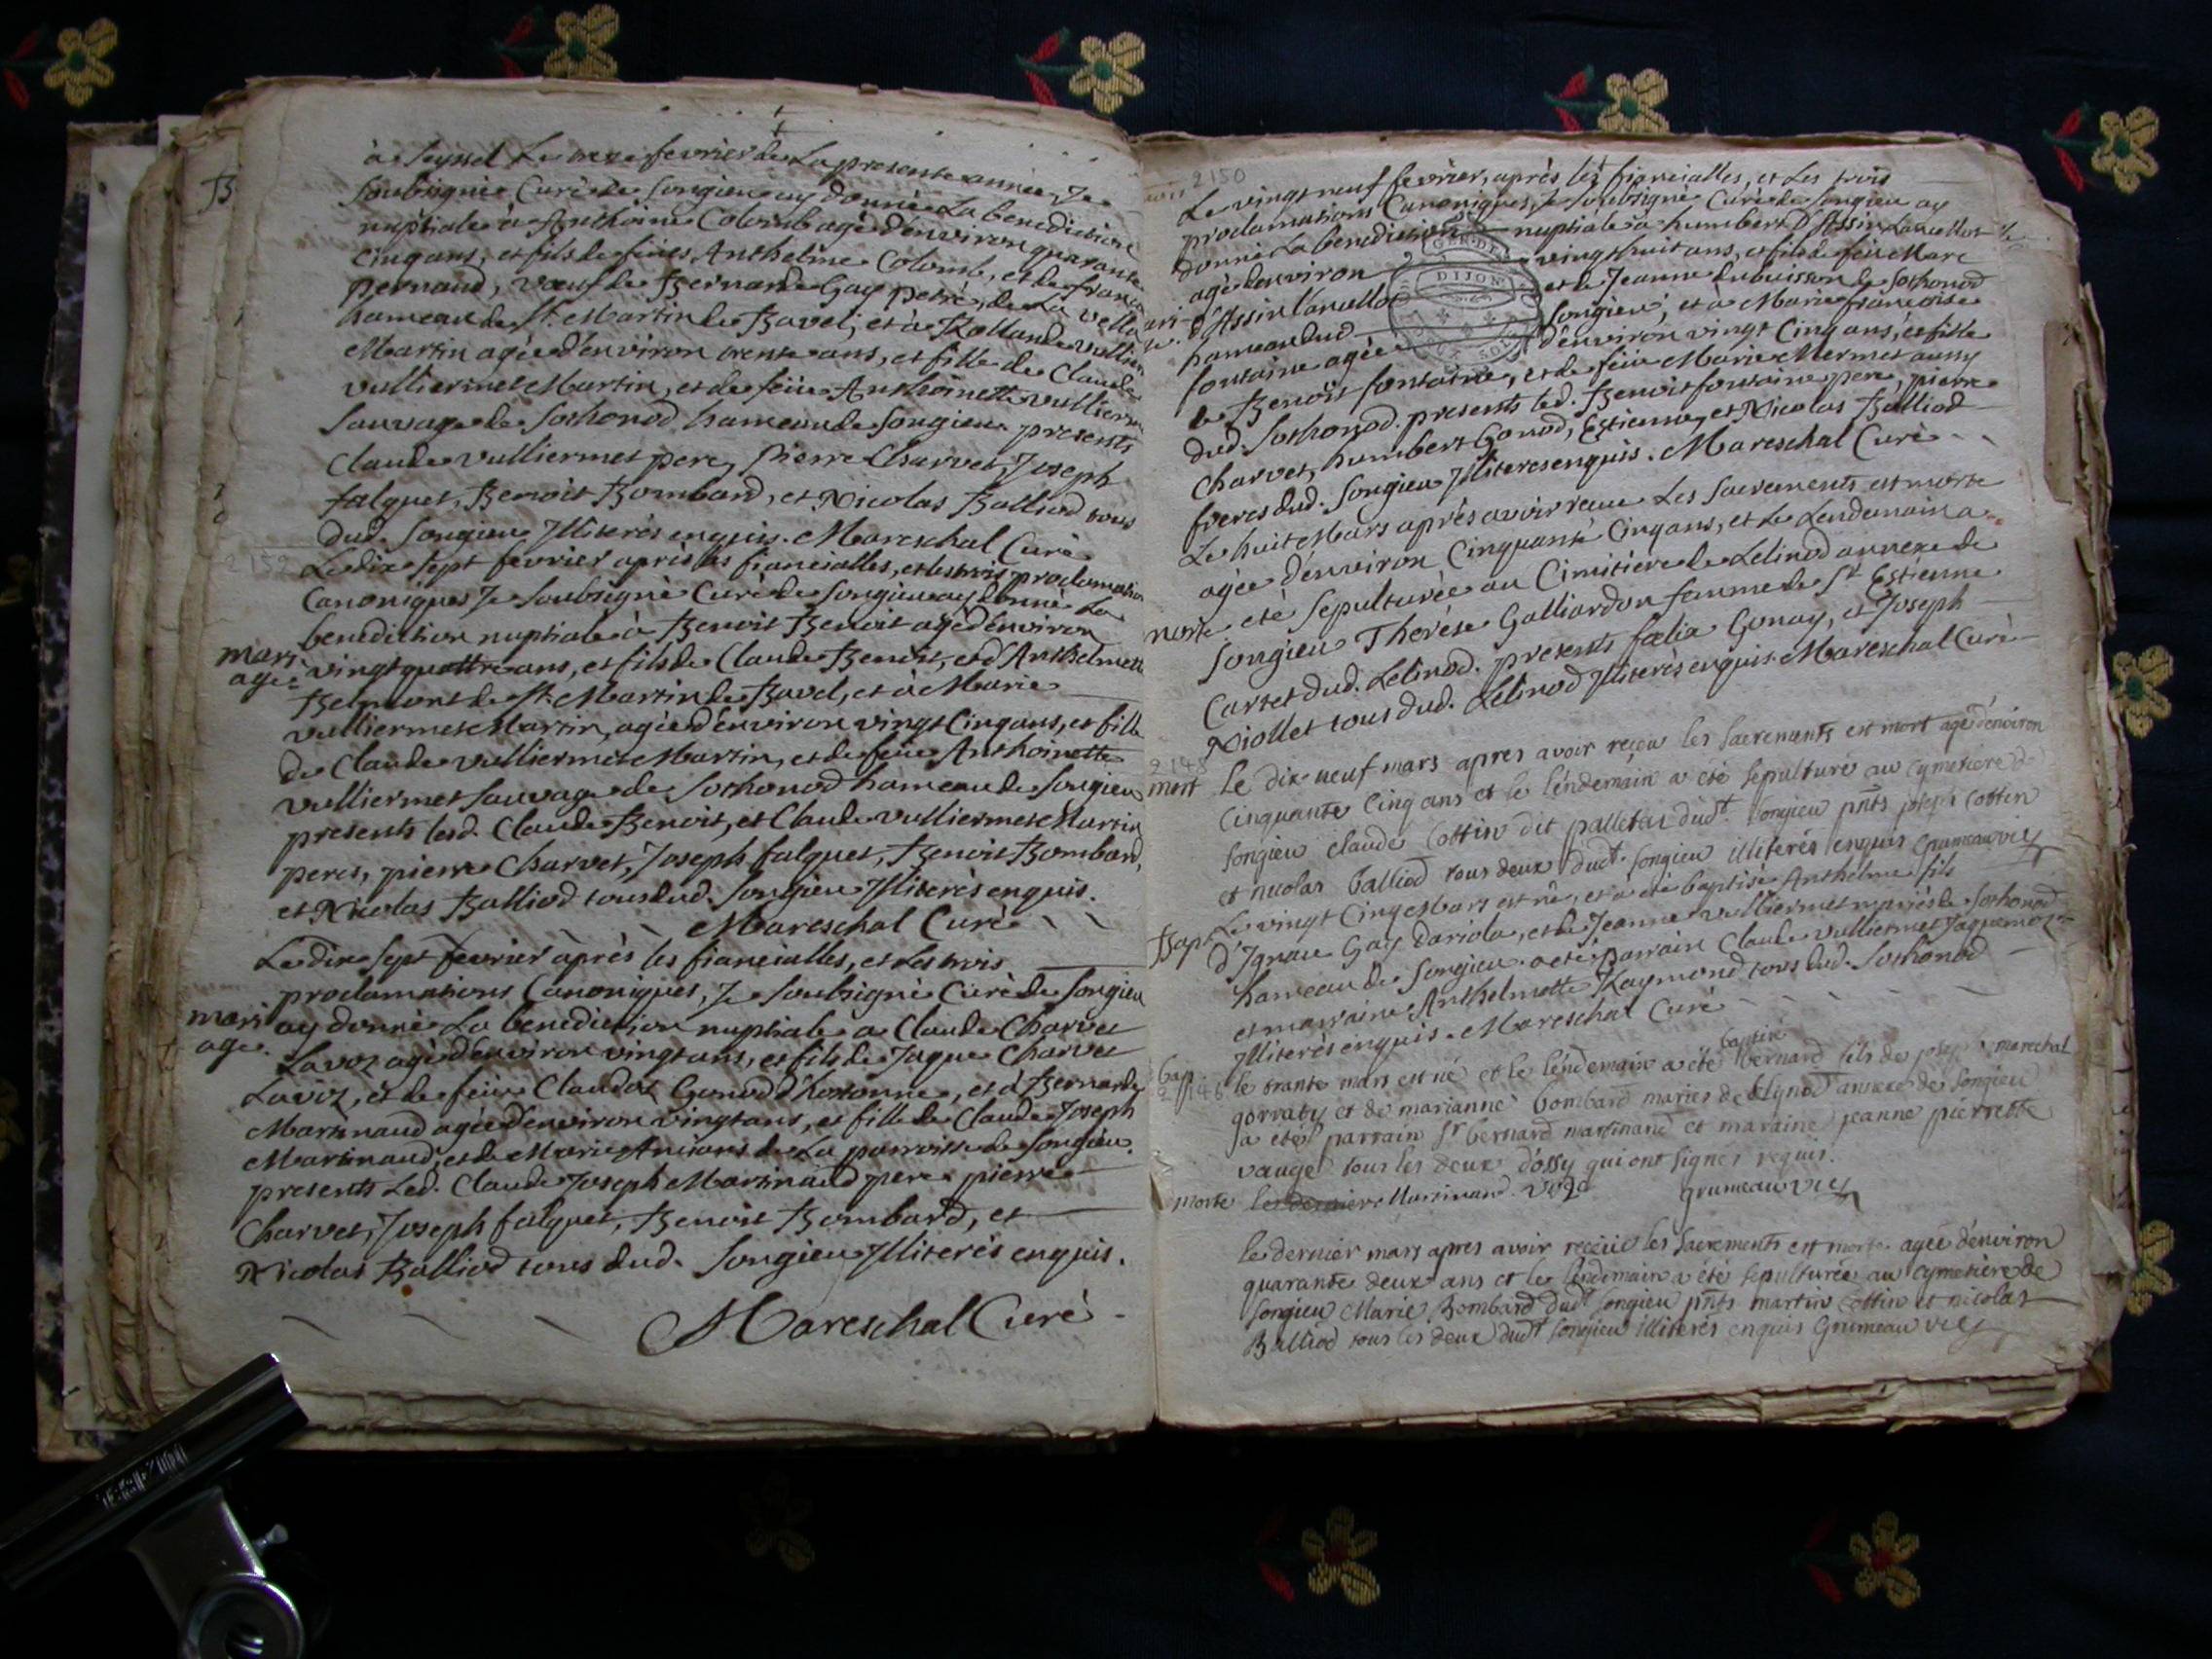 à Seyssel Le onze fevrier de La presente année, Je
soubsigné Curé de Songieu ay donné La benediction
nuptiale à Anthoine Colomb agé d'environ quarante
Cinq ans, et fils de feües Anthelme Colomb, et de
pernaud, vœuf de Bernarde Gay petré, de La Vella
hameau de St. Martin de Bavel, et à Rollande vullier
Martin agée d'environ trente ans, et fille de Claude
vulliermet Martin, et de feüe Anthoinette vullierm
Sauvage de Sothonod hameau de Songieu presents
Claude vulliermet pere, Pierre Charvet, Joseph
falquet, Benoit Bombard, et Nicolas Balliod tous
dud. Songieu Jlliterés enquis. Mareschal Curé
2152
Le dix sept fevrier après les fianciailles, et les trois proclamations
Canoniques Je Soubsigné Curé de Songieu ay donné La
benediction nuptiale à Benoit Benoit agé d'environ
mari
age
vingt quattre ans, et fils de Claude Benoit, et d'Anthelmette
Belmont de St. Martin de Bavel, et à Marie
vulliermet Martin, agée d'environ vingt Cinq ans, et fille
de Claude vulliermet Martin, et de feüe Anthoinette
vulliermet Sauvage de Sothonod hameau de Songieu
presents lesd. Claude Benoit, et Claude vulliermet Martin
peres, pierre Charvet, Joseph falquet, Benoit Bombard,
et Nicolas Balliod tous dud. Songieu Jlliterés enquis.
Mareschal Curé
Le dix sept fevrier après les fianciailles, et Les trois
proclamations Canoniques, Je Soubsigné Curé de Songieu
mari
age.
ay donné La benediction nuptiale a Claude Charvet
Lavoz agé d'environ vingt ans, et fils de Jaque Charvet
Lavoz, et de feüe Claudaz Gonod d'hotonne, et à Bernarde
Martinaud agée d'environ vingt ans, et fille de Claude Joseph
Martinaud, et de Marie de La parroisse de Songieu.
presents Led. Claude Joseph Martinaud pere pierre
Charvet, Joseph falquet, Benoit Bombard, et
Nicolas Balliod tous dud. Songieu Jlliterés enquis.
Mareschal Curé
2150
Le vingt neuf fevrier, après les fianciailles, et Les trois
proclamations Canoniques, Je Soubsigné Curé de Songieu ay
donné La benediction nuptiale à humbert D'Assin Lancellot
agé d'environ vingt huit ans, et fils de feu Marc
d'Assin Lancellot et de Jeanne dubuisson de Sothonod
hameau dud. Songieu, et à Marie françoise
fontaine agée d'environ vingt Cinq ans, et fille
de Benoit fontaine, et de feüe Marie Mermet aussy
dud. Sothonod. presents led. Benoit fontaine pere, pierre
Charvet, humbert Gonod, Estienne, et Nicolas Balliod
freres dud. Songieu Jlliteres enquis. Mareschal Curé
DIJON
Le huit Mars après avoir receu Les Sacrements est morte
agée d'environ Cinquante Cinq ans, et Le Lendemain a
morte
eté Sepulturée au Cimitiere de Lelinod annexe de
Songieu Therése Galliardon femme de St Estienne
Cartet dud. Lelinod. presents fœlix Gonay, et Joseph
Niollet tous dud. Lelinod Jlliterés enquis. Mareschal Curé
2148
mort
Le dix-neuf mars apres avoir reçeu les Sacrements est mort agé d'environ
Cinquante Cinq ans et le lendemain a été sepulturé au Cymetiere de
Songieu Claude Cottin dit palletaz dudt. Songieu pnts joseph Cottin
et nicolas balliod tous deux dudt. songieu illiterés enquis Grumeau vic
Bapt
Le vingt Cinq Mars est né, et a eté baptisé Anthelme fils
d'Ignace Gay dariola, et de Jeanne vulliermet mariés de Sothonod
hameau de Songieu. a eté parrain Claude vulliermet Jaquemoz
et marraine Anthelmette Raymond tous dud. Sothonod
Jlliterés enquis. Mareschal Curé
bap.
2146
le trante mars est né et le lendemain a été baptisé bernard fils de joseph marechal
gorraty et de marianne bombard mariés de Elynod annexe de Songieu
a eté parrain Sr bernard martinand et maraine jeanne pierrette
vauge tous les deux d'ossy qui ont signés requis.
Martinand. vuge Grumeau vic
morte
le dernier mars apres avoir reçeüe les Sacrements est morte agée d'environ
quarante deux ans et le lendemain a été sepulturée au Cymetiere de
Songieu Marie Bombard dudt songieu pnts martin Cottin et nicolas
Balliod tous les deux dudt songieu illiterés enquis Grumeau vic